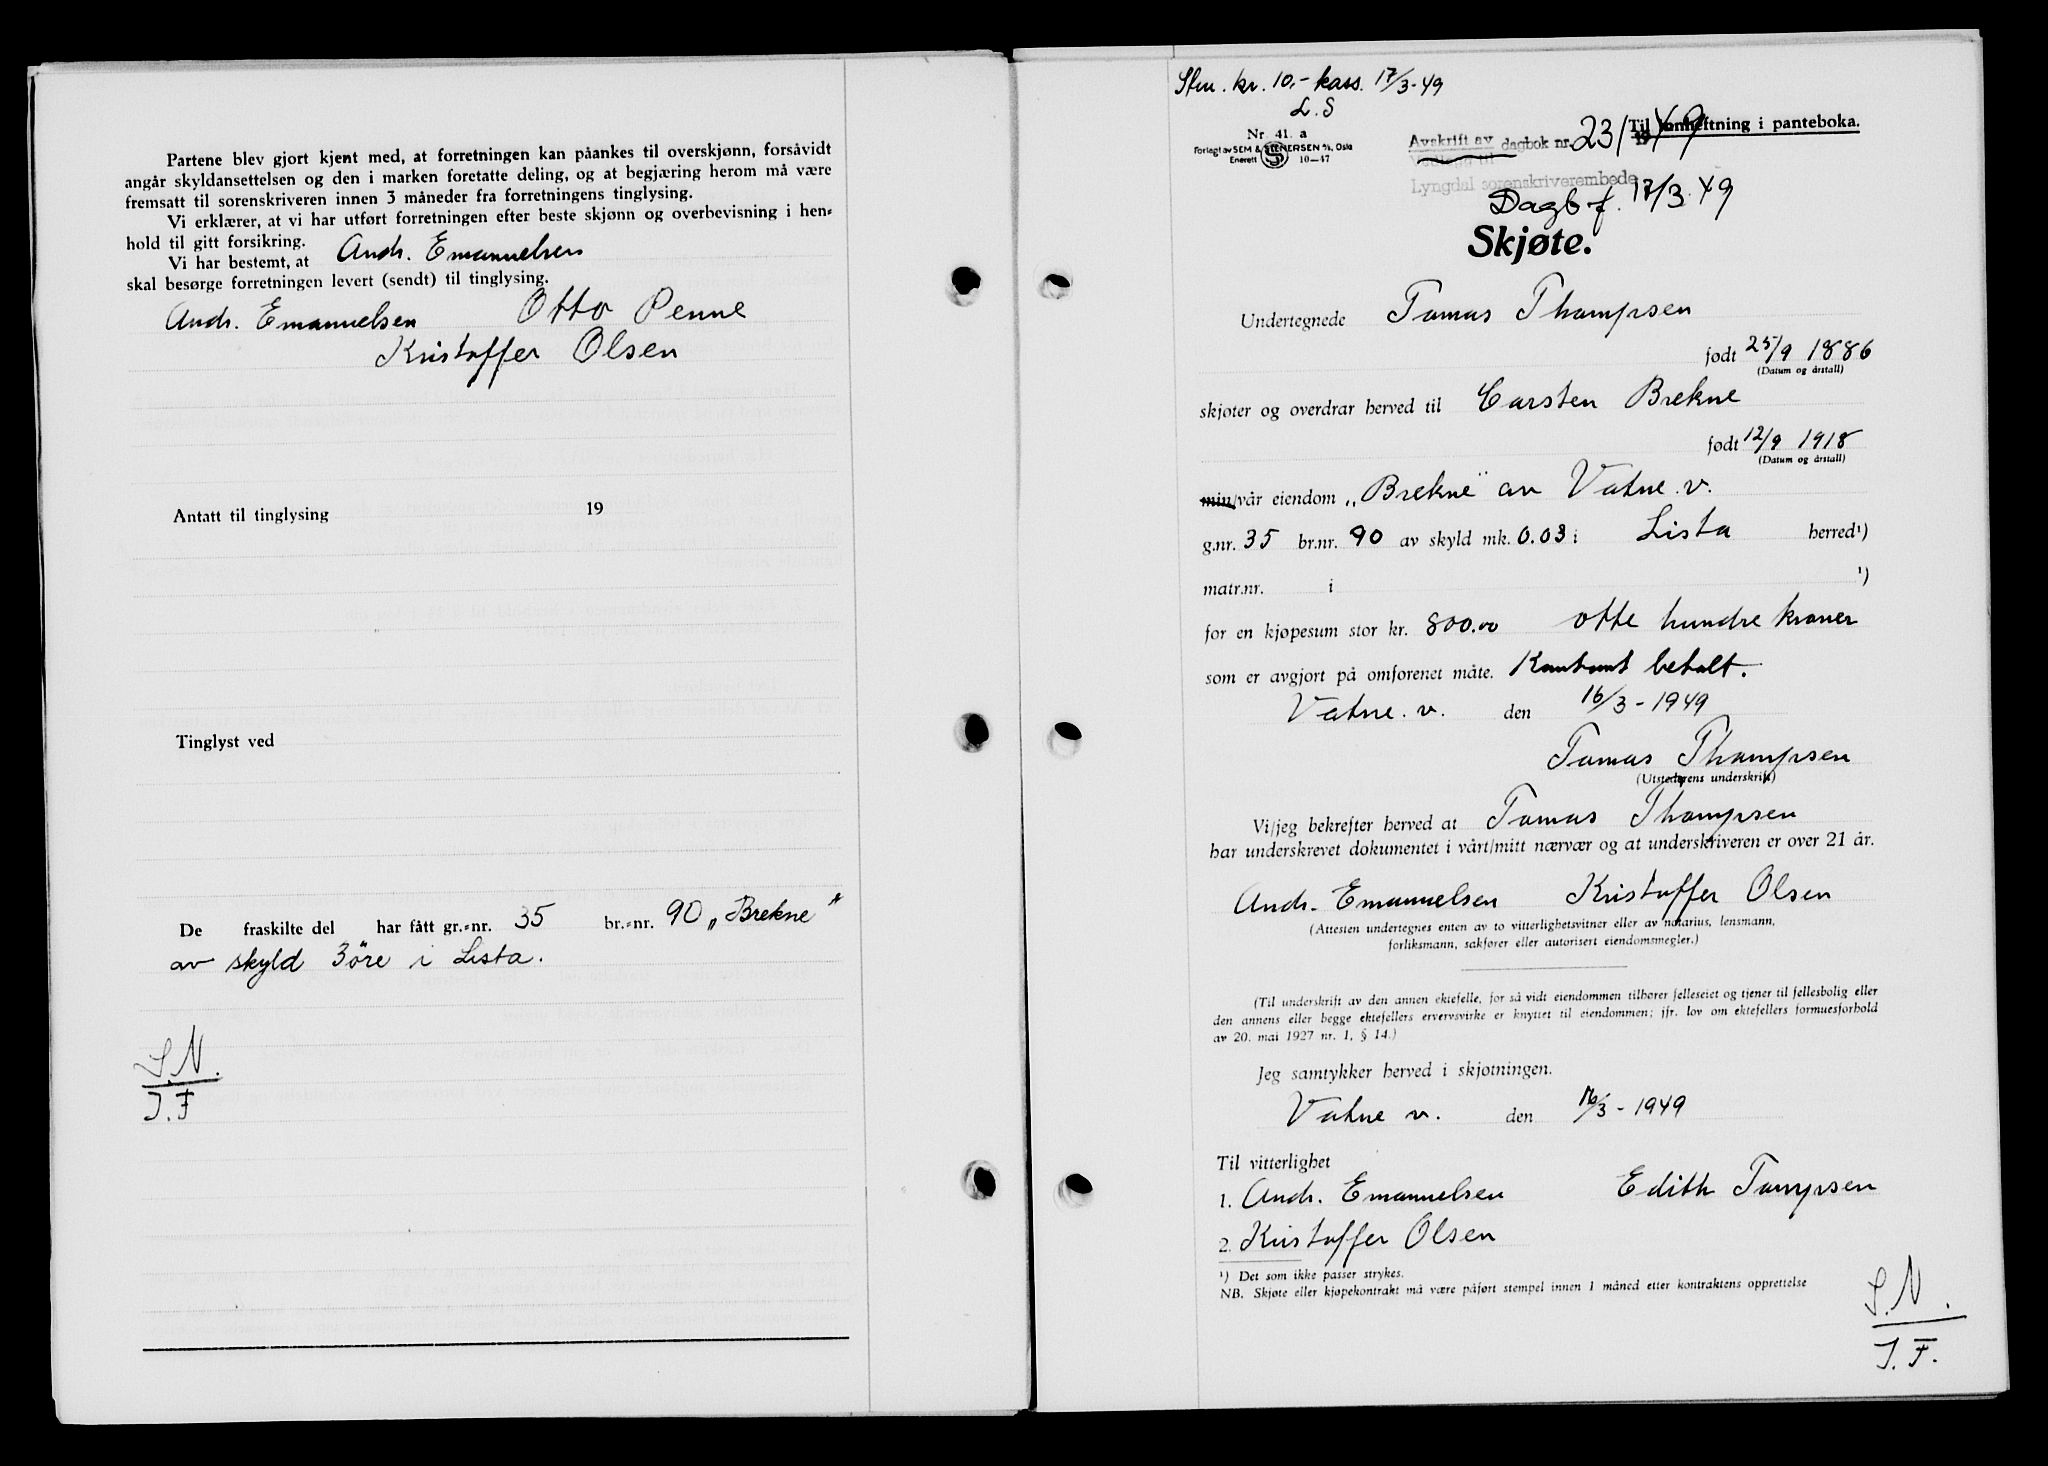 Partene blev gjort kjent med, at forretningen kan påankes til overskjønn, forsåvidt
angår skyldansettelsen og den i marken foretatte deling, og at begjæring herom må være
fremsatt til sorenskriveren innen 3 måneder fra forretningens tinglysing.
Vi erklærer, at vi har utført forretningen efter beste skjønn og overbevisning i hen-
hold til gitt forsikring.
Vi har bestemt, at Andr. Emanuelsen
skal besørge forretningen levert (sendt) til tinglysing.
Andr. Emanuelsen Otto Penne
Kristoffer Olsen
Antatt til tinglysing 19
Tinglyst ved
De fraskilte del har fått gr.-nr. 35 br.-nr. 90 „Brekne"
av skyld 3 öre i Lista.
S.N.
J.F
Stem. kr. 10,- kass. 17/3-49
L.S
Nr. 41. a
Forlagt av SEM & STENERSEN A/S, Oslo
Enerett 10—47
Til innheftning i panteboka.
Avskrift av dagbok nr. 231 1949
Lyngdal sorenskriverembede
Dagb f. 17/3.49
Skjøte.
Undertegnede Tomas Thompsen
født 25/9 1886
(Datum og årstall)
skjøter og overdrar herved til Carsten Brekne
født 12/9 1918
(Datum og årstall)
min/vår eiendom „Brekne" av Vatne. v.
g.nr. 35 br.nr. 90 av skyld mk. 0.03 i Lista herred¹)
matr.nr. i ¹)
for en kjøpesum stor kr. 800.00 otte hundre kroner
som er avgjort på omforenet måte. Kontant betalt.
Vatne. v. den 16/3-1949
Tomas Thompsen
(Utstederens underskrift)
Vi/jeg bekrefter herved at Tomas Thompsen
har underskrevet dokumentet i vårt/mitt nærvær og at underskriveren er over 21 år.
Andr. Emanuelsen Kristoffer Olsen
(Attesten undertegnes enten av to vitterlighetsvitner eller av notarius, lensmann,
forliksmann, sakfører eller autorisert eiendomsmegler.)
(Til underskrift av den annen ektefelle, for så vidt eiendommen tilhører felleseiet og tjener til fellesbolig eller
den annens eller begge ektefellers ervervsvirke er knyttet til eiendommen; jfr. lov om ektefellers formuesforhold
av 20. mai 1927 nr. 1, § 14.)
Jeg samtykker herved i skjøtningen.
Vatne v. den 16/3-1949
Til vitterlighet
1. Andr. Emanuelsen Edith Tompsen
2. Kristoffer Olsen
¹) Det som ikke passer strykes.
NB. Skjøte eller kjøpekontrakt må være påført stempel innen 1 måned etter kontraktens opprettelse
S.N.
J.F.